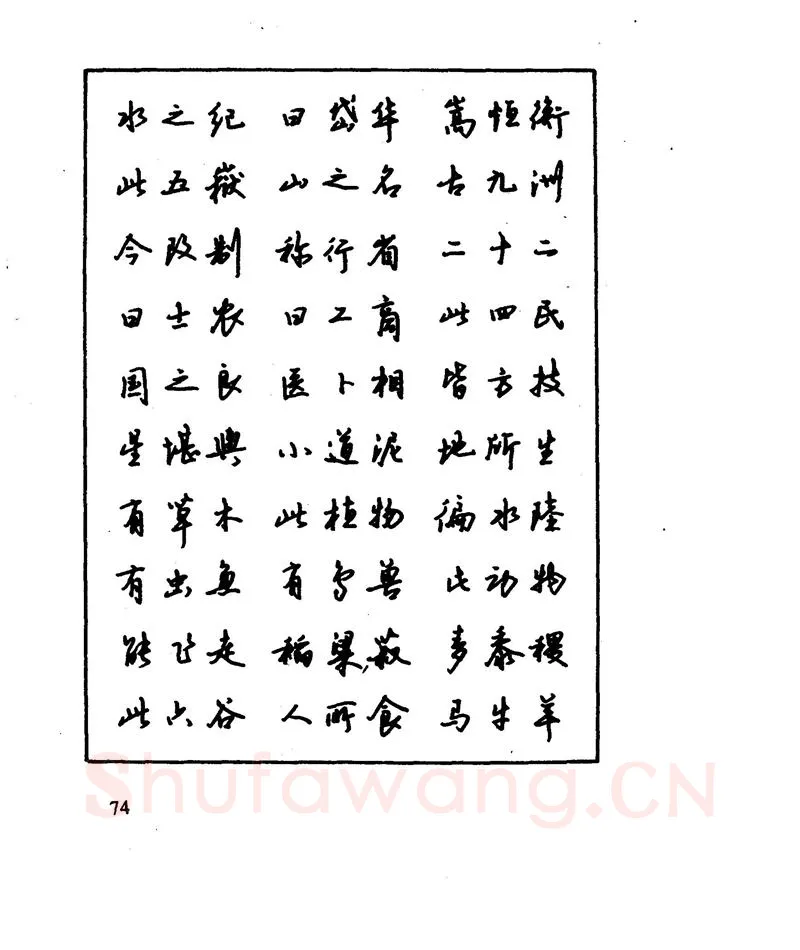 水之纪 曰岱华 嵩恒衡
此五嶽 山之名 古九洲
今改制 称行省 二十二
曰士农 曰工商 此四民
国之良 医卜相 皆方技
星堪舆 小道泥 地所生
有草木 此植物 偏水陸
有虫鱼 有鸟兽 此动物
能飞走 稻粱菽 麦黍稷
此六谷 人所食 马牛羊
74
Shufawang.CN